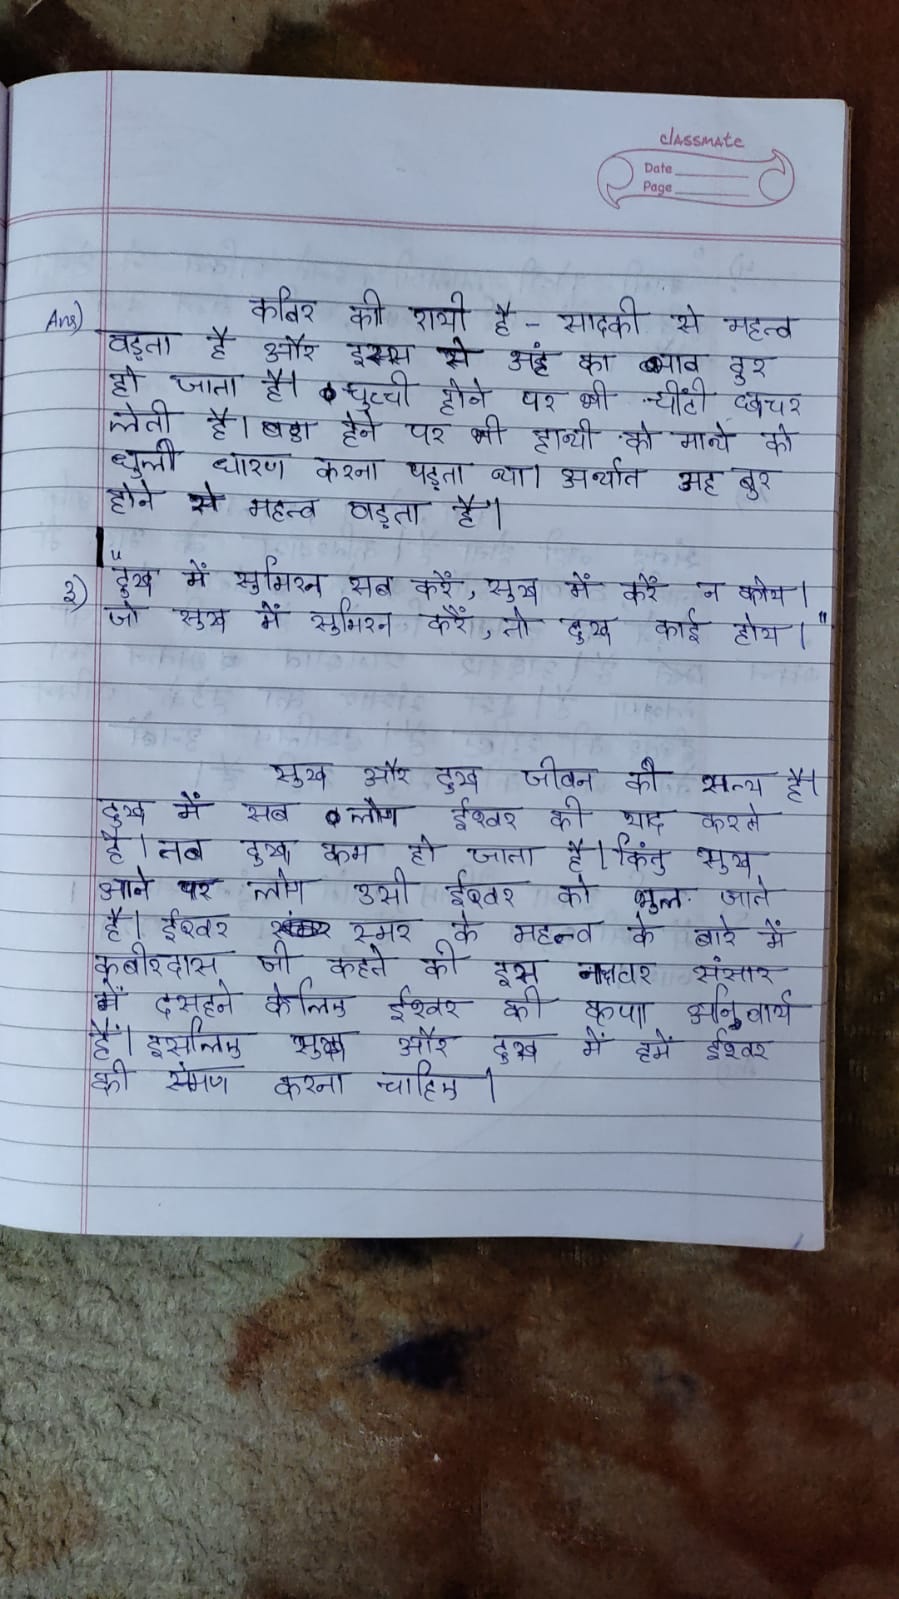 classmate
Date
Page
Ans) कबिर की राथी है - सादकी से महत्व
बड़ता है और इस से अंह का भाव दुर
हो जाता है। छुट्टी होने पर भी चींटी
लेती है। बडा होने पर भी हाथी को माथे को
धुली धारण करना पड़ता था। अर्थात अह दुर
होने से महत्व बड़ता है।
२) "दुख में सुमिरन सब करैं, सुख में करैं न कोय।
जो सुख में सुमिरन करैं, तो दुख काई होय।"
सुख और दुख जीवन की सत्य है।
दुख में सब लोग ईश्वर की याद करते
है। तब दुख कम हो जाता है। किंतु सुख
आने पर लोग उसी ईश्वर को भुल जाते
है। ईश्वर स्मर के महत्व के बारे में
कबीरदास जी कहते की इस संसार
में केलिए ईश्वर की कृपा अनिवार्य
हैं। इसलिए सुख और दुख में हमें ईश्वर
की संमण करना चाहिए।